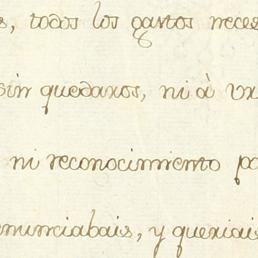 s, todos los gastos neces
sin quedaros, ni à vu
ni reconocimiento pa
enunciabais, y queriais